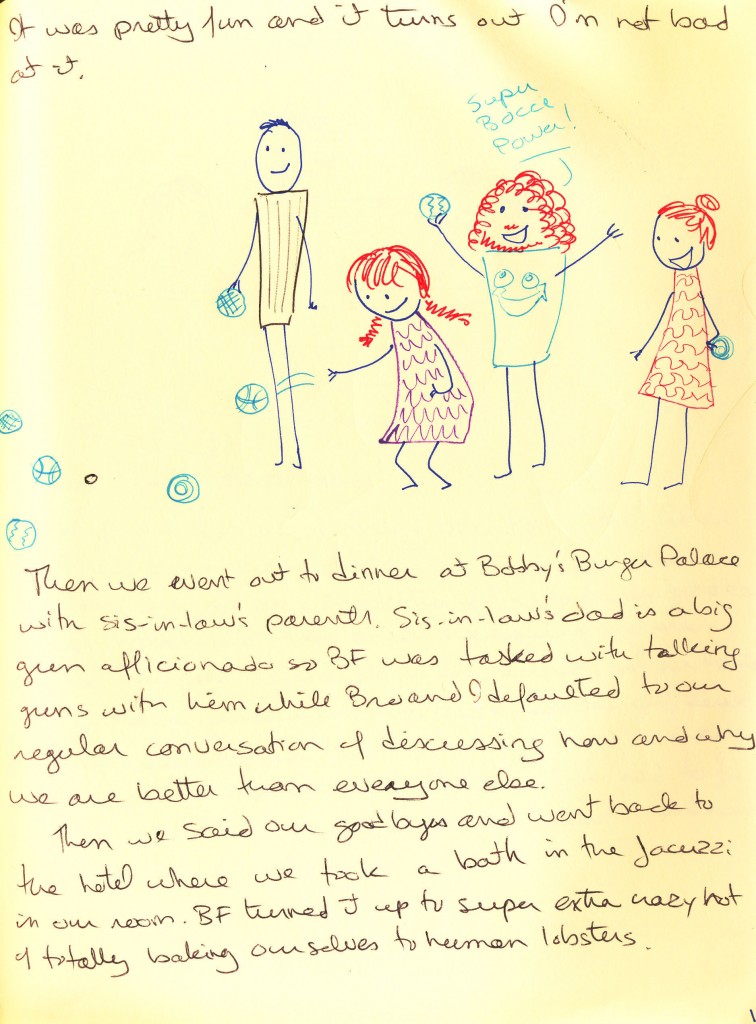 It was pretty fun and it turns out I'm not bad
at it.
Super
Bocce
Power!
Then we went out to dinner at Bobby's Burger Palace
with sis-in-law's parents. Sis-in-law's dad is a big
gun afficionado so BF was tasked with talking
guns with him while Bro and I defaulted to our
regular conversation of discussing how and why
we are better than everyone else.
Then we said our goodbyes and went back to
the hotel where we took a bath in the Jacuzzi
in our room. BF turned it up to super extra crazy hot
& totally baking ourselves to human lobsters.